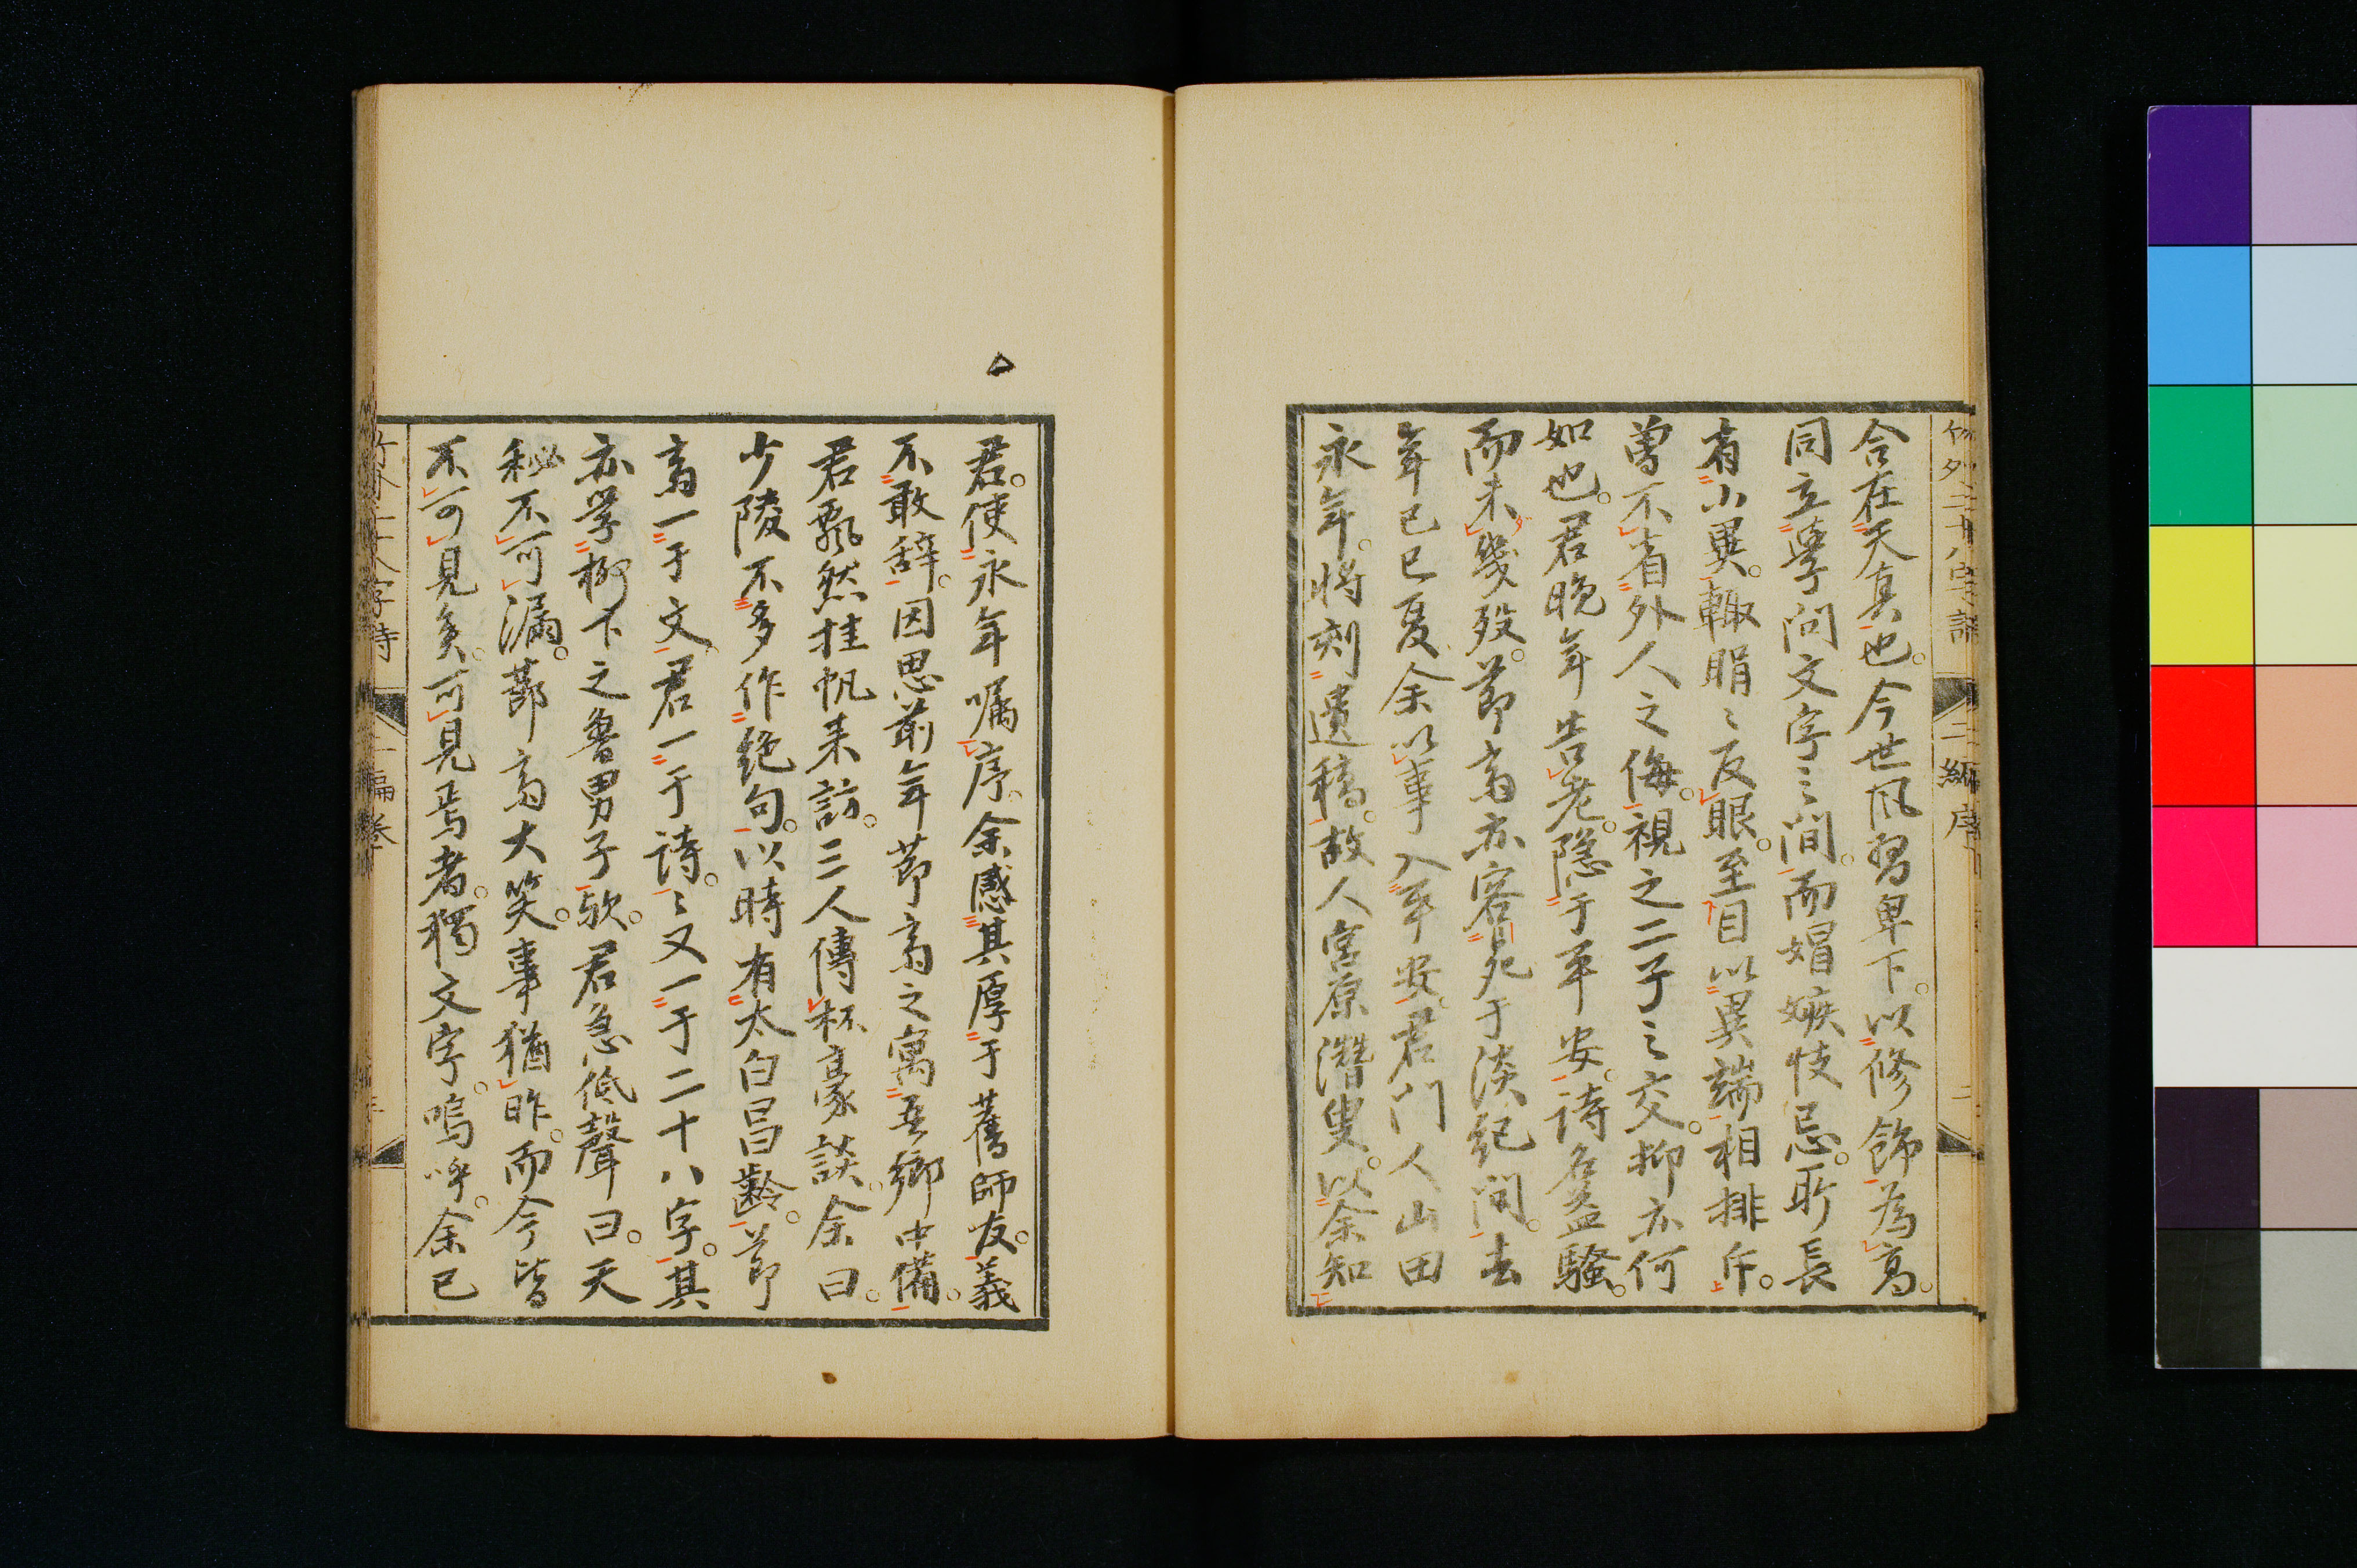 合在天真也。今世風習卑下。以修飾為高。
同立學問文字之間。而媢嫉忮忌。所長
有小異。輙睊〻反眼。至目以異端相排斥。
曽不省外人之侮。視之二子之交。抑亦何
如也。君晩年告老。隠于平安。詩名益騒。
而未幾歿。節斎亦客死于淡紀間。去
年己巳夏余以事入平安。君門人山田
永年。将刻遺稿。故人宮原潜叟。以余知
君。使永年嘱序。余感其厚于舊師友。義
不敢辞。因思前年節斎之寓吾郷中備。
君飄然挂帆来訪。三人傳杯豪談。余曰。
少陵不多作絶句。以時有太白昌齢。節
斎一于文。君一于詩。〻又一于二十八字。其
亦学柳下之魯男子歟。君急低聲曰。天
秘不可漏。節斎大笑。事猶昨。而今皆
不可見矣。可見焉者。獨文字。嗚呼。余已
竹外二十八字詩 二編序 二
竹外二十八字詩 二編巻